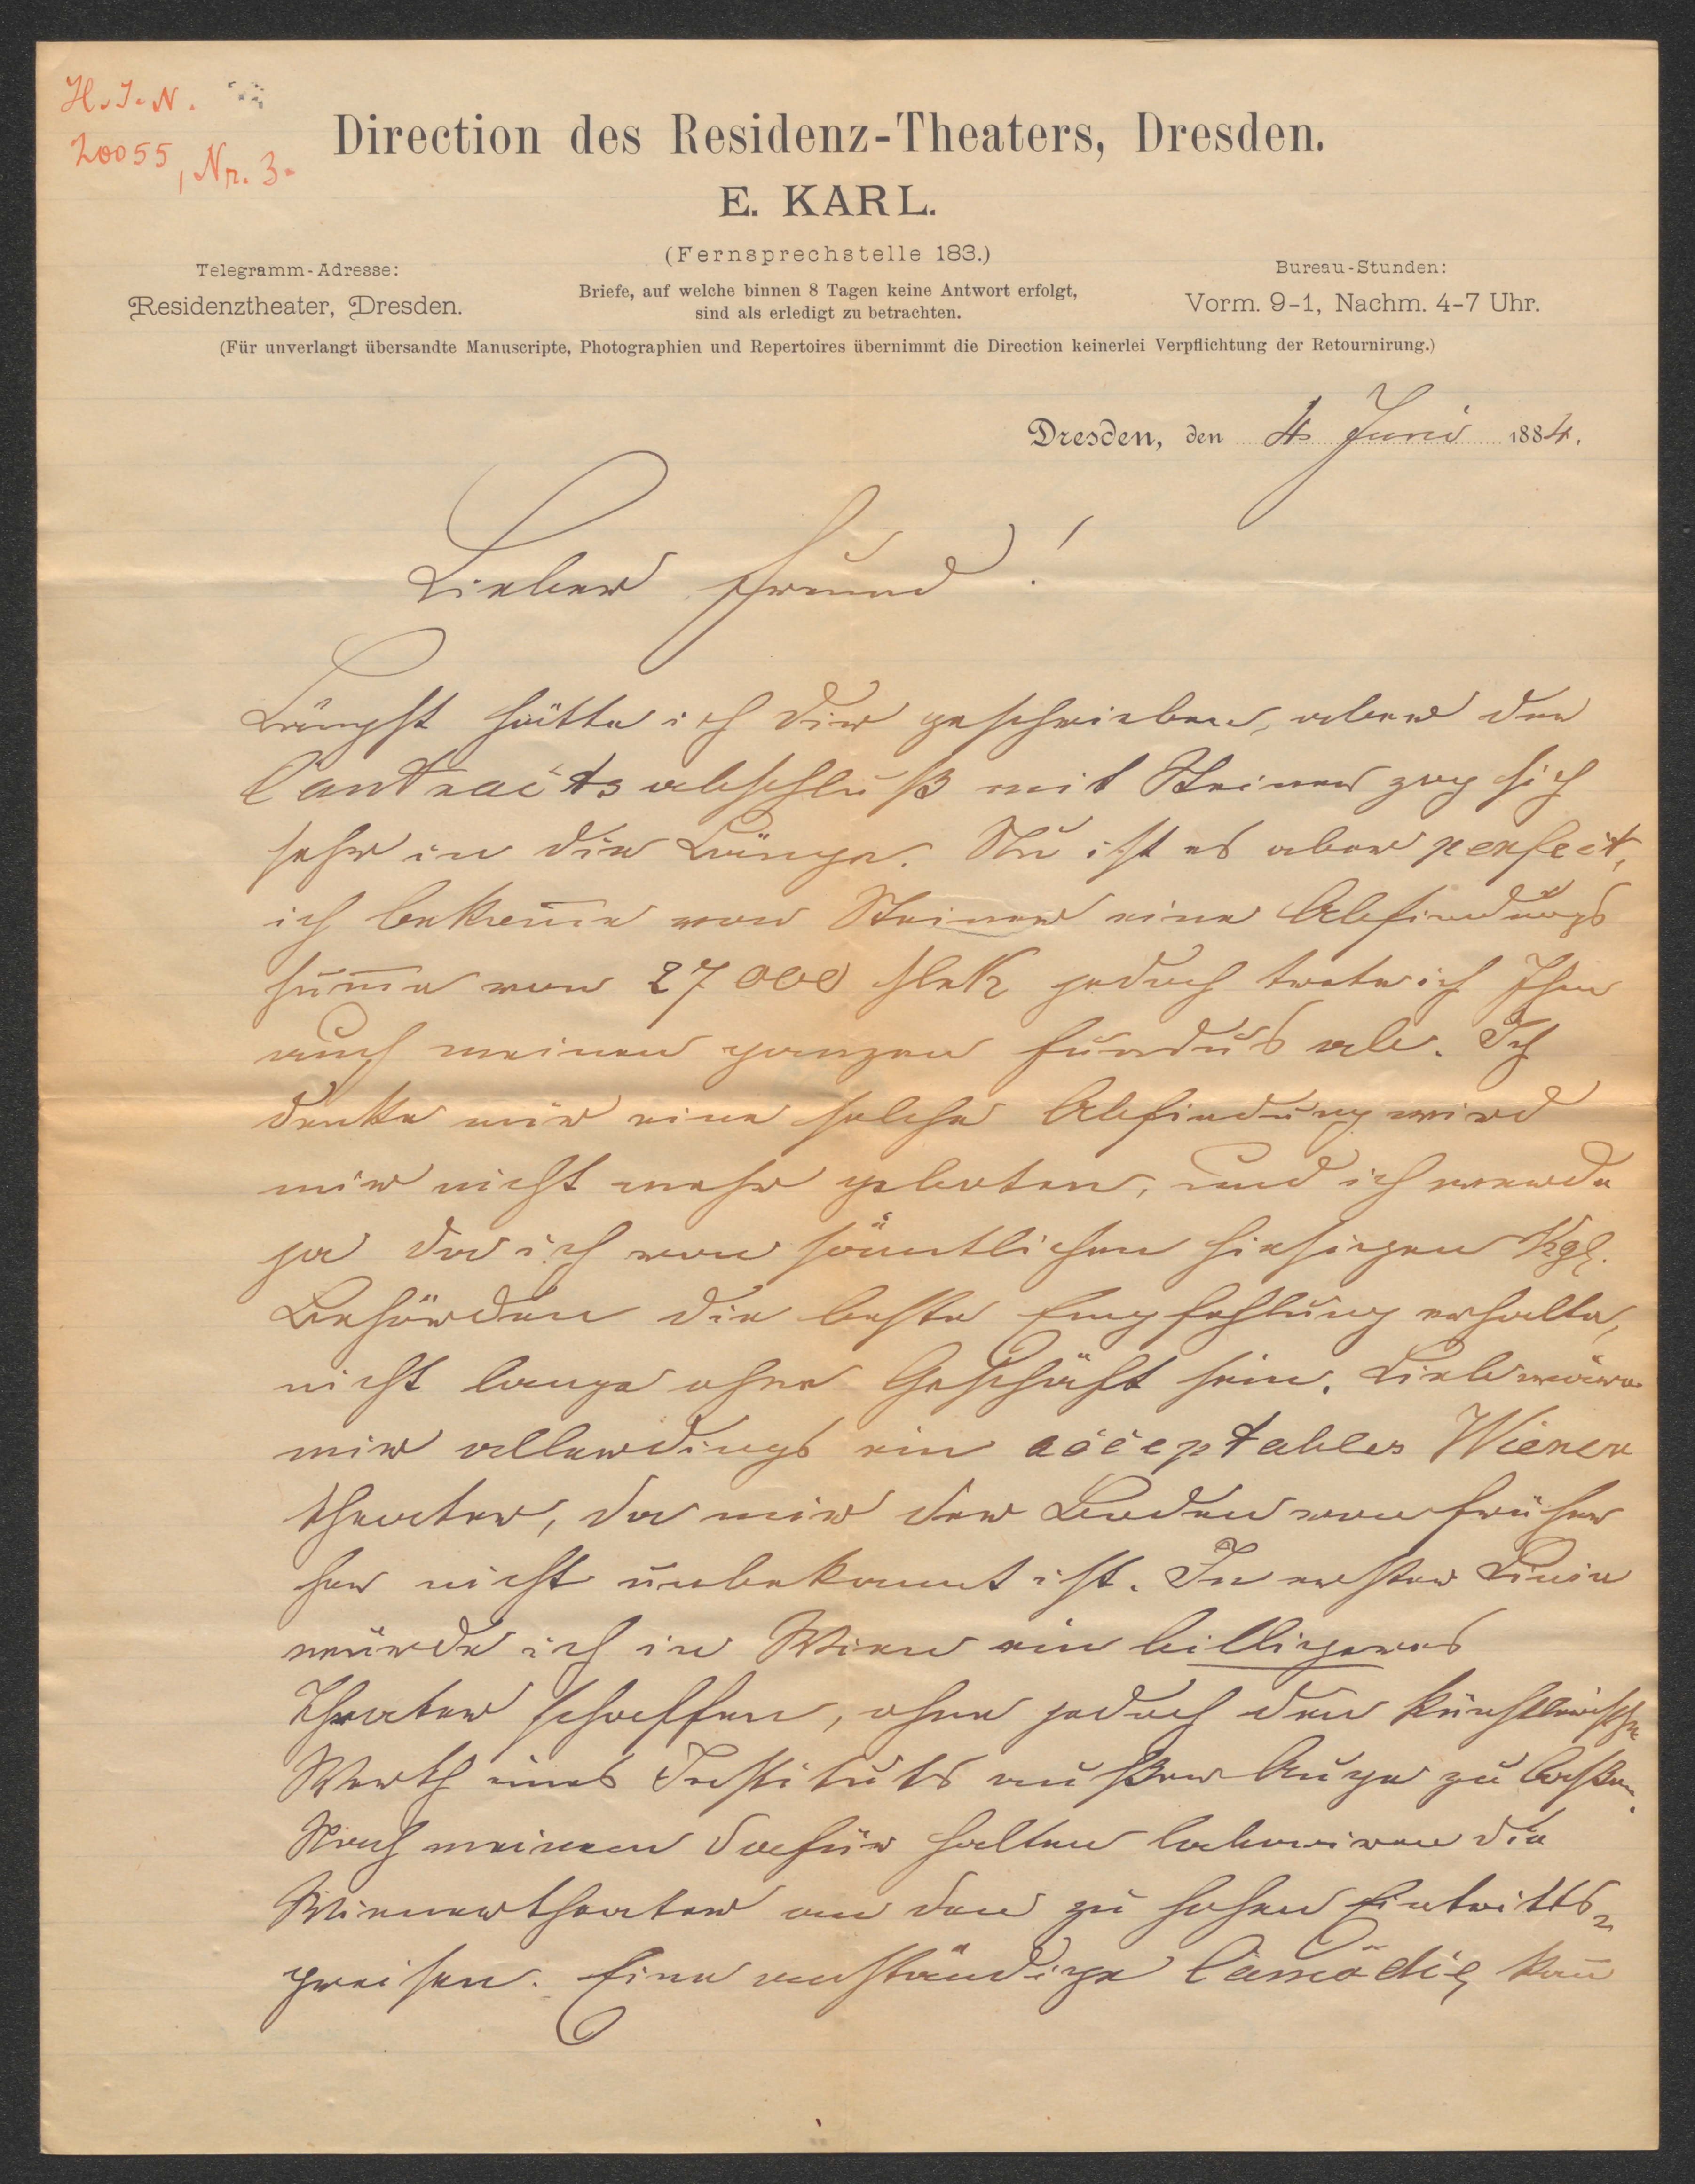 H.I.N.
20055, Nr. 3.
Direction des Residenz-Theaters, Dresden.
E. KARL.
(Fernsprechstelle 183.)
Telegramm-Adresse:
Residenztheater, Dresden.
Briefe, auf welche binnen 8 Tagen keine Antwort erfolgt,
sind als erledigt zu betrachten.
Bureau-Stunden:
Vorm. 9-1, Nachm. 4-7 Uhr.
(Für unverlangt übersandte Manuscripte, Photographien und Repertoires übernimmt die Direction keinerlei Verpflichtung der Retournirung.)
Dresden, den 4 Juni 1884.
Lieber Freund!
Längst hätte ich Dir geschrieben, aber der
Contractsabschluß mit Steiner zog sich
sehr in die Länge. Nu ist es aber perfect,
ich bekom̄e von Steiner eine Abfindungs
sum̄e von 27000 jedoch trete ich Ihm
auch meinen ganzen Fundus ab. Ich
denke mir eine solche Abfindung wird
mir nicht mehr geboten, und ich werde
ja da ich von sämtlichen hiesigen Kgl.
Behörden die beste Empfehlung erhalte,
nicht lange ohne Geschäft sein. Lieb wäre
mir allerdings ein acceptables Wiener
theater, da mir der Boden von früher
her nicht unbekannt ist. In erster Linie
würde ich in Wien ein billigeres
Theater schaffen, ohne jedoch den künstlerischen
Werth eines Instituts außer Auge zu laßen.
Nach meinem dafür halten laboriren die
Wienertheater an den zu hohen Eintritts-
preisen. Eine anständige Comödie kan̄